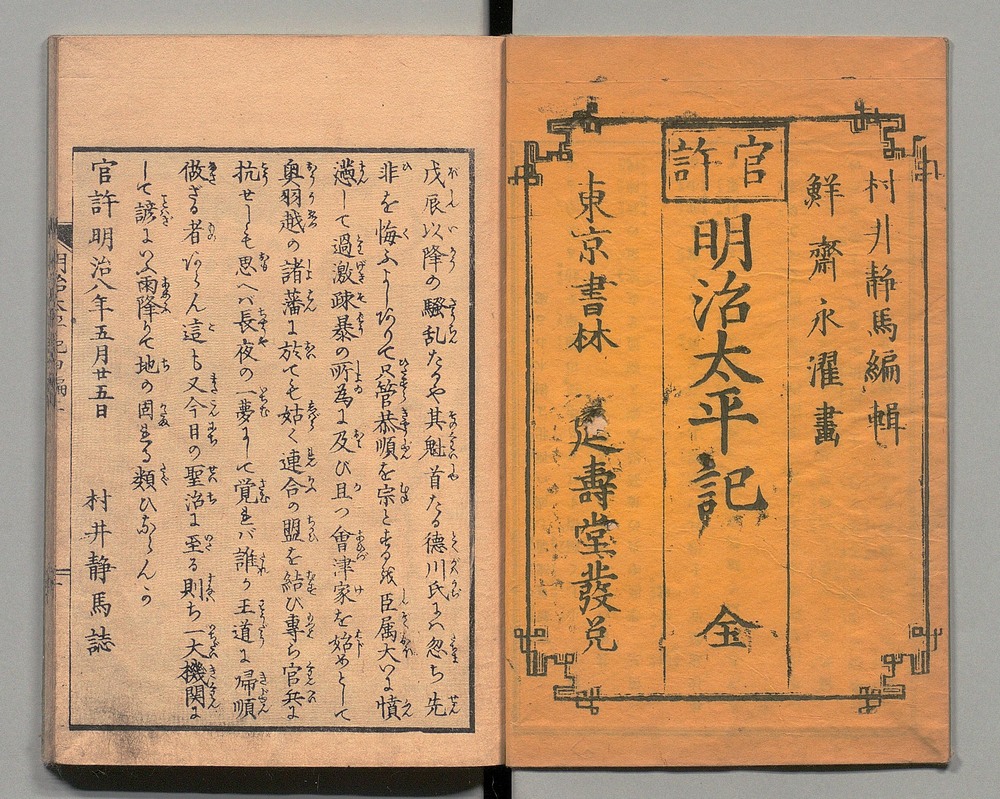 村井静馬編輯
鮮齋永濯畫
官許
明治太平記 全
東京書林 延壽堂發兌
戊辰以降の騒乱たるや其魁首たる徳川氏にハ忽ち先
非を悔ふよしありて只管恭順を宗とする残臣属大いに憤
懣して過激疎暴の所為に及び且つ會津家を始めとして
奥羽越の諸藩に於ても姑く連合の盟を結び専ら官兵に
抗せしも思へバ長夜の一夢にして覚れバ誰か王道に帰順
做ざる者あらん這も又今日の聖治に至る則ち一大機関に
して諺にいふ雨降りて地の固まる類ひならんか
官許明治八年五月廿五日
村井静馬誌